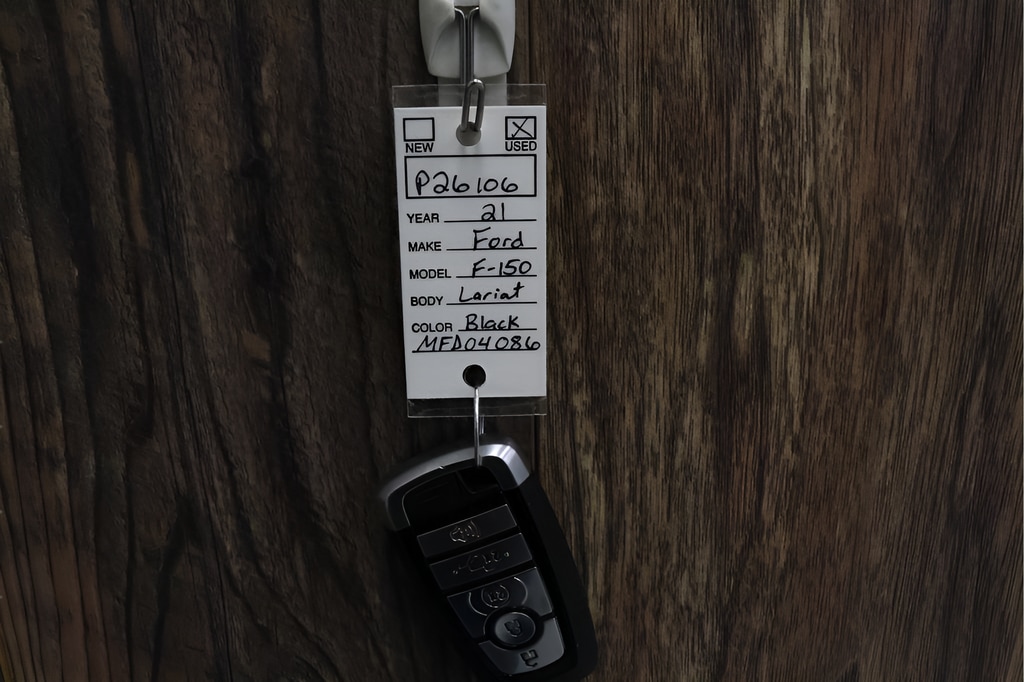 NEW USED
P26106
YEAR 21
MAKE Ford
MODEL F-150
BODY Lariat
COLOR Black
MFD04086